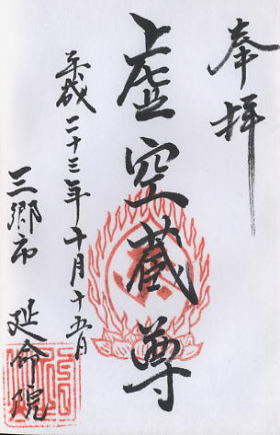 奉拝
虚空蔵尊
平成二十三年十月十五日
三郷市 延命院